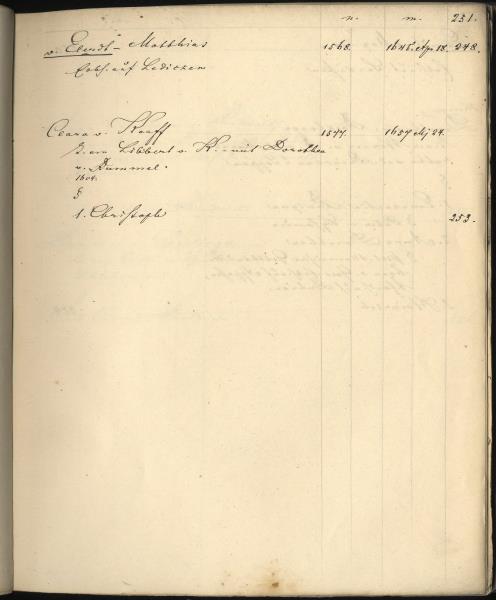 n. m. 231.
v. Elendt - Matthias 1568. 1645. Ap. 18. 248.
Erbh. auf
Clara v. Korff 1577. 1657 Mj 24.
Libbert v. K. - mit Dorothea
v. Rummel.
1604.
§
1. Christoph 253.